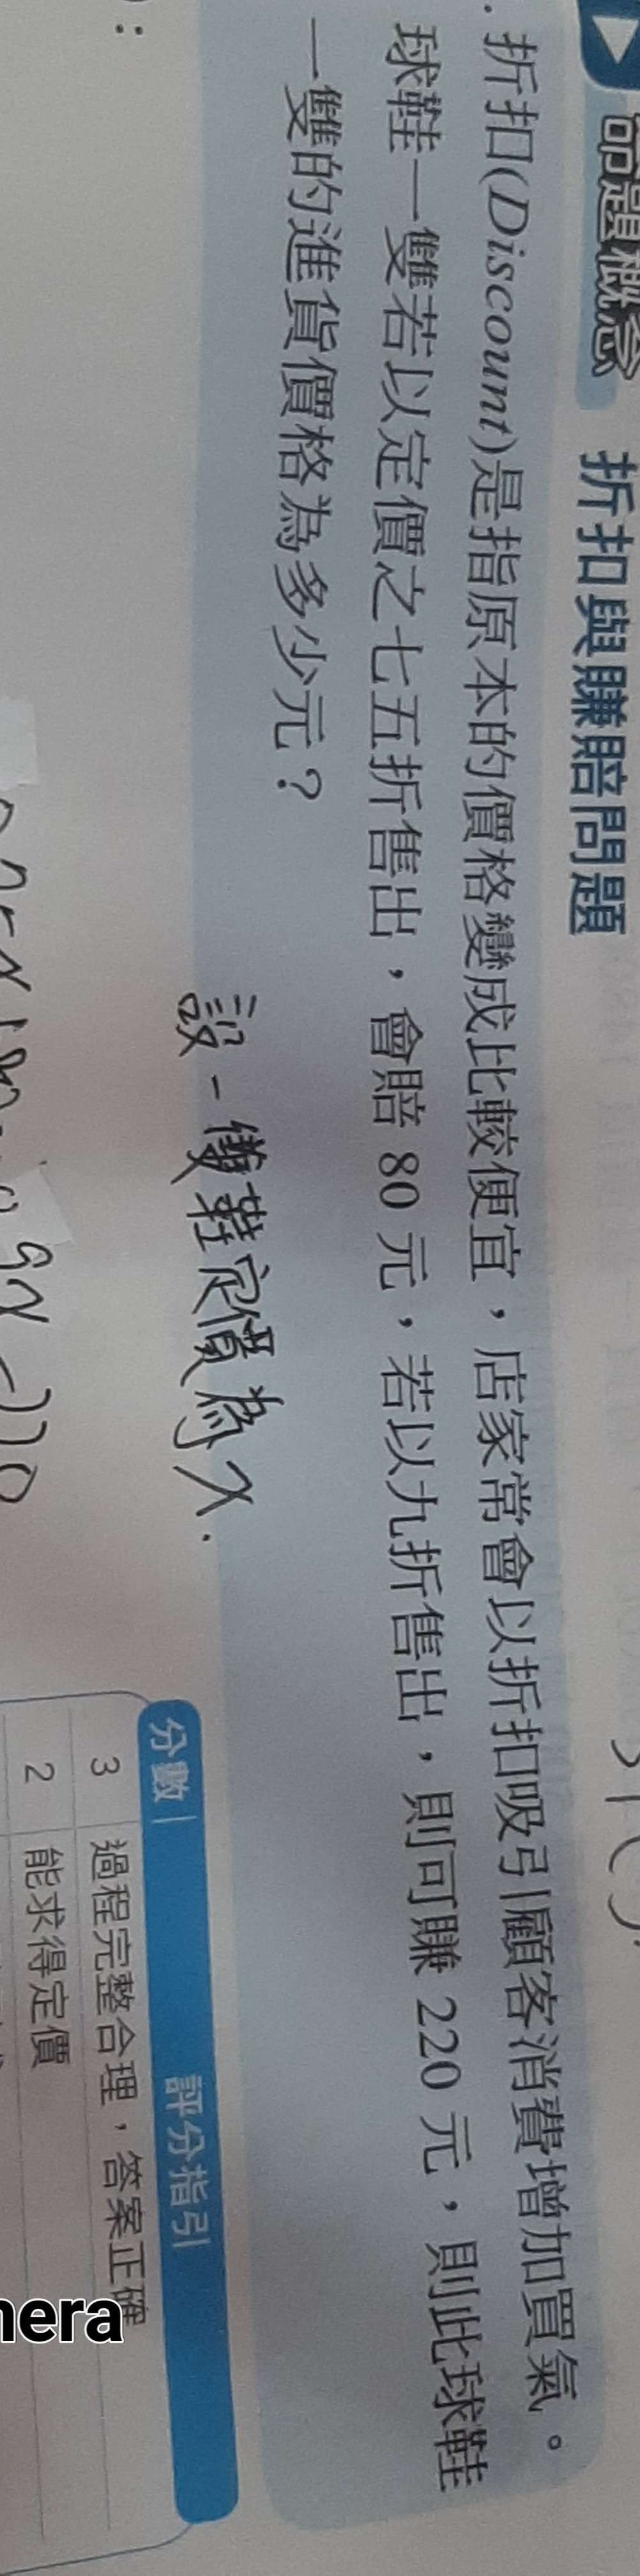 命題概念 折扣與賺賠問題
折扣(Discount)是指原本的價格變成比較便宜，店家常會以折扣吸引顧客消費增加買氣。
球鞋一雙若以定價之七五折售出，會賠 80 元，若以九折售出，則可賺 220 元，則此球鞋
一雙的進貨價格為多少元？
設一雙鞋定價為x.
分數 評分指引
3 過程完整合理，答案正確
2 能求得定價
9x-220
mera